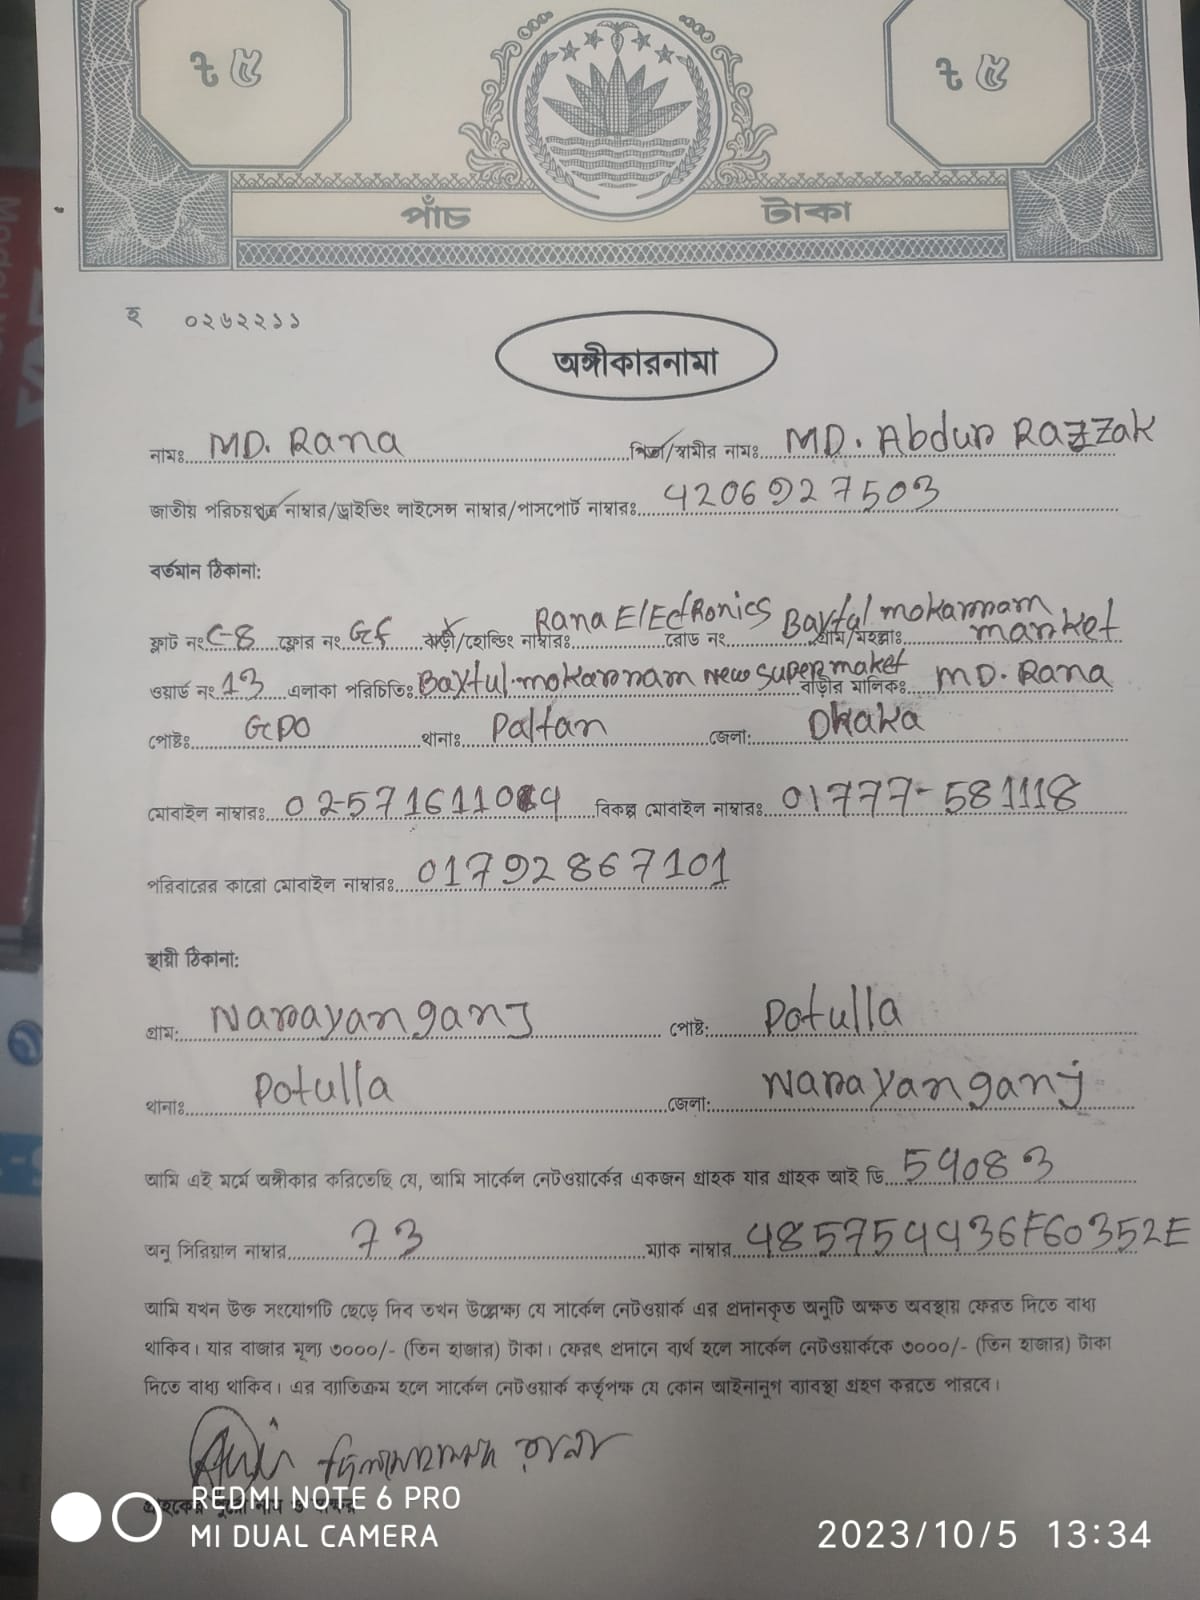 ৳ ৫ ৳ ৫
পাঁচ টাকা
হ ০২৬২২১১
অঙ্গীকারনামা
নামঃ MD. Rana পিতা/স্বামীর নামঃ MD. Abdur Razzak
জাতীয় পরিচয়পত্র নাম্বার/ড্রাইভিং লাইসেন্স নাম্বার/পাসপোর্ট নাম্বারঃ 4206927503
বর্তমান ঠিকানা:
ফ্লাট নং C-8 ফ্লোর নং GF বাড়ী/হোল্ডিং নাম্বারঃ Rana Electronics রোড নং গ্রাম/মহল্লাঃ Baytul mokarram market
ওয়ার্ড নং 13 এলাকা পরিচিতিঃ Baytul mokarram New super maket বাড়ীর মালিকঃ MD. Rana
পোষ্টঃ GPO থানাঃ Paltan জেলা: Dhaka
মোবাইল নাম্বারঃ বিকল্প মোবাইল নাম্বারঃ 01777-581118
পরিবারের কারো মোবাইল নাম্বারঃ 01792867101
স্থায়ী ঠিকানা:
গ্রাম: Narayanganj পোষ্ট: Potulla
থানাঃ Potulla জেলা: Narayanganj
আমি এই মর্মে অঙ্গীকার করিতেছি যে, আমি সার্কেল নেটওয়ার্কের একজন গ্রাহক যার গ্রাহক আই ডি 54083
অনু সিরিয়াল নাম্বার 73 ম্যাক নাম্বার 485754436F60352E
আমি যখন উক্ত সংযোগটি ছেড়ে দিব তখন উল্লেক্ষ্য যে সার্কেল নেটওয়ার্ক এর প্রদানকৃত অনুটি অক্ষত অবস্থায় ফেরত দিতে বাধ্য
থাকিব। যার বাজার মূল্য ৩০০০/- (তিন হাজার) টাকা। ফেরৎ প্রদানে ব্যর্থ হলে সার্কেল নেটওয়ার্ককে ৩০০০/- (তিন হাজার) টাকা
দিতে বাধ্য থাকিব। এর ব্যাতিক্রম হলে সার্কেল নেটওয়ার্ক কর্তৃপক্ষ যে কোন আইনানুগ ব্যাবস্থা গ্রহণ করতে পারবে।
রানা
গ্রাহকের
REDMI NOTE 6 PRO
MI DUAL CAMERA
2023/10/5 13:34